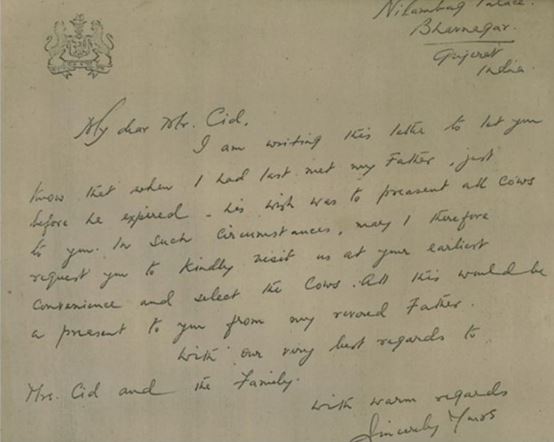 Nilambag Palace.
Bhavnagar.
Gujerat
India.
My dear Mr. Cid.
I am writing this lette to let you
know that when I had last met my Father, just
before he expered - his wish was to preasent all cows
to you. In such circumstances, may I therefore
request you to kindly visit us at your earliest
convenience and select the Cows. All this would be
a present to you from my revored Father.
With our very best regards to
Mrs. Cid and the Family.
with warm regards
Sincerely Yours